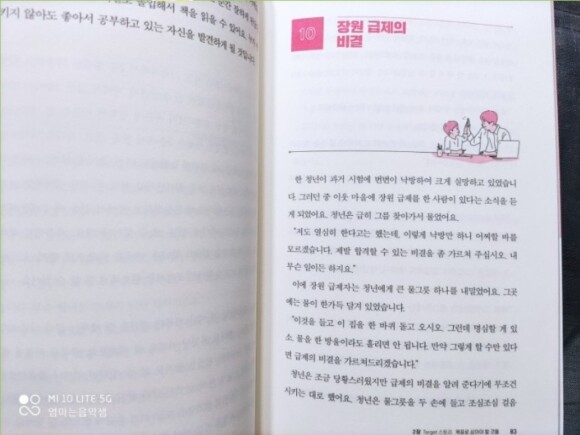 몰입해서 책을 읽을 수 있어요.
키지 않아도 좋아서 공부하고 있는 자신을 발견하게 될 것입니다.
10
장원 급제의
비결
한 청년이 과거 시험에 번번이 낙방하여 크게 실망하고 있었습니
다. 그러던 중 이웃 마을에 장원 급제를 한 사람이 있다는 소식을 듣
게 되었어요. 청년은 급히 그를 찾아가서 물었어요.
“저도 열심히 한다고는 했는데, 이렇게 낙방만 하니 어찌할 바를
모르겠습니다. 제발 합격할 수 있는 비결을 좀 가르쳐 주십시오. 내
무슨 일이든 하지요.”
이에 장원 급제자는 청년에게 큰 물그릇 하나를 내밀었어요. 그곳
에는 물이 한가득 담겨 있었습니다.
“이것을 들고 이 집을 한 바퀴 돌고 오시오. 그런데 명심할 게 있
소. 물을 한 방울이라도 흘리면 안 됩니다. 만약 그렇게 할 수만 있다
면 급제의 비결을 가르쳐드리겠습니다.”
청년은 조금 당황스러웠지만 급제의 비결을 알려 준다기에 무조건
시키는 대로 했어요. 청년은 물그릇을 두 손에 들고 조심조심 걸음
2장 Target 스토리 목표로 삼아야 할 것들 83
MI 10 LITE 5G
엄마는음악쌤